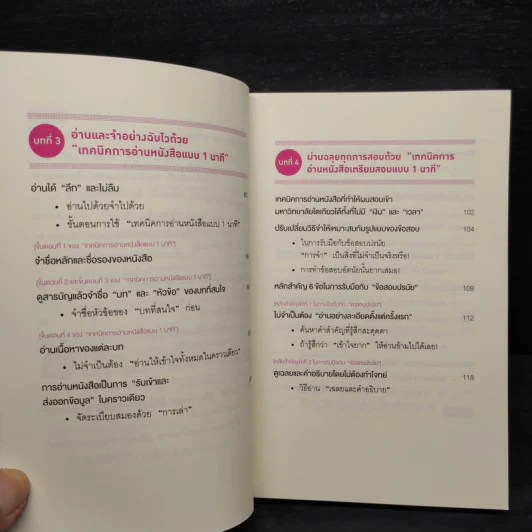 บทที่ 3
อ่านและจำอย่างฉับไวด้วย
“เทคนิคการอ่านหนังสือแบบ 1 นาที”
อ่านได้ “ลึก” และไม่ลืม
• อ่านไปด้วยจำไปด้วย
• ขั้นตอนการใช้ “เทคนิคการอ่านหนังสือแบบ 1 นาที”
[ขั้นตอนที่ 1 ของ “เทคนิคการอ่านหนังสือแบบ 1 นาที”]
จำชื่อหลักและชื่อรองของหนังสือ
[ขั้นตอนที่ 2 และขั้นตอนที่ 3 ของ “เทคนิคการอ่านหนังสือแบบ 1 นาที”]
ดูสารบัญแล้วจำชื่อ “บท” และ “หัวข้อ” ของบทที่สนใจ
• จำชื่อหัวข้อของ “บทที่สนใจ” ก่อน
[ขั้นตอนที่ 4 ของ “เทคนิคการอ่านหนังสือแบบ 1 นาที”]
อ่านเนื้อหาของแต่ละบท
• ไม่จำเป็นต้อง “อ่านให้เข้าใจทั้งหมดในคราวเดียว”
การอ่านหนังสือเป็นการ “รับเข้าและ
ส่งออกข้อมูล” ในคราวเดียว
• จัดระเบียบสมองด้วย “การเล่า”
บทที่ 4
ผ่านฉลุยทุกการสอบด้วย “เทคนิคการ
อ่านหนังสือเตรียมสอบแบบ 1 นาที”
เทคนิคการอ่านหนังสือที่ทำให้ผมสอบเข้า
มหาวิทยาลัยโตเกียวได้ทั้งที่ไม่มี “เงิน” และ “เวลา” 102
ปรับเปลี่ยนวิธีจำให้เหมาะสมกับรูปแบบของข้อสอบ 104
• ในการรับมือกับข้อสอบปรนัย
“การจำ” เป็นสิ่งที่ไม่จำเป็นจริงหรือ!
• การทำข้อสอบอัตนัยนั้นยากเสมอ!
หลักสำคัญ 6 ข้อในการรับมือกับ “ข้อสอบปรนัย” 109
[หลักสำคัญข้อที่ 1 ในการรับมือกับ “ข้อสอบปรนัย”]
ไม่จำเป็นต้อง “อ่านอย่างละเอียดตั้งแต่ครั้งแรก” 112
• ค้นหาคำสำคัญที่รู้สึกสะดุดตา
• ถ้ารู้สึกว่า “เข้าใจยาก” ให้อ่านข้ามไปได้เลย!
[หลักสำคัญข้อที่ 2 ในการรับมือกับ “ข้อสอบปรนัย”]
ดูเฉลยและคำอธิบายโดยไม่ต้องทำโจทย์ 118
• วิธีอ่าน “เฉลยและคำอธิบาย”